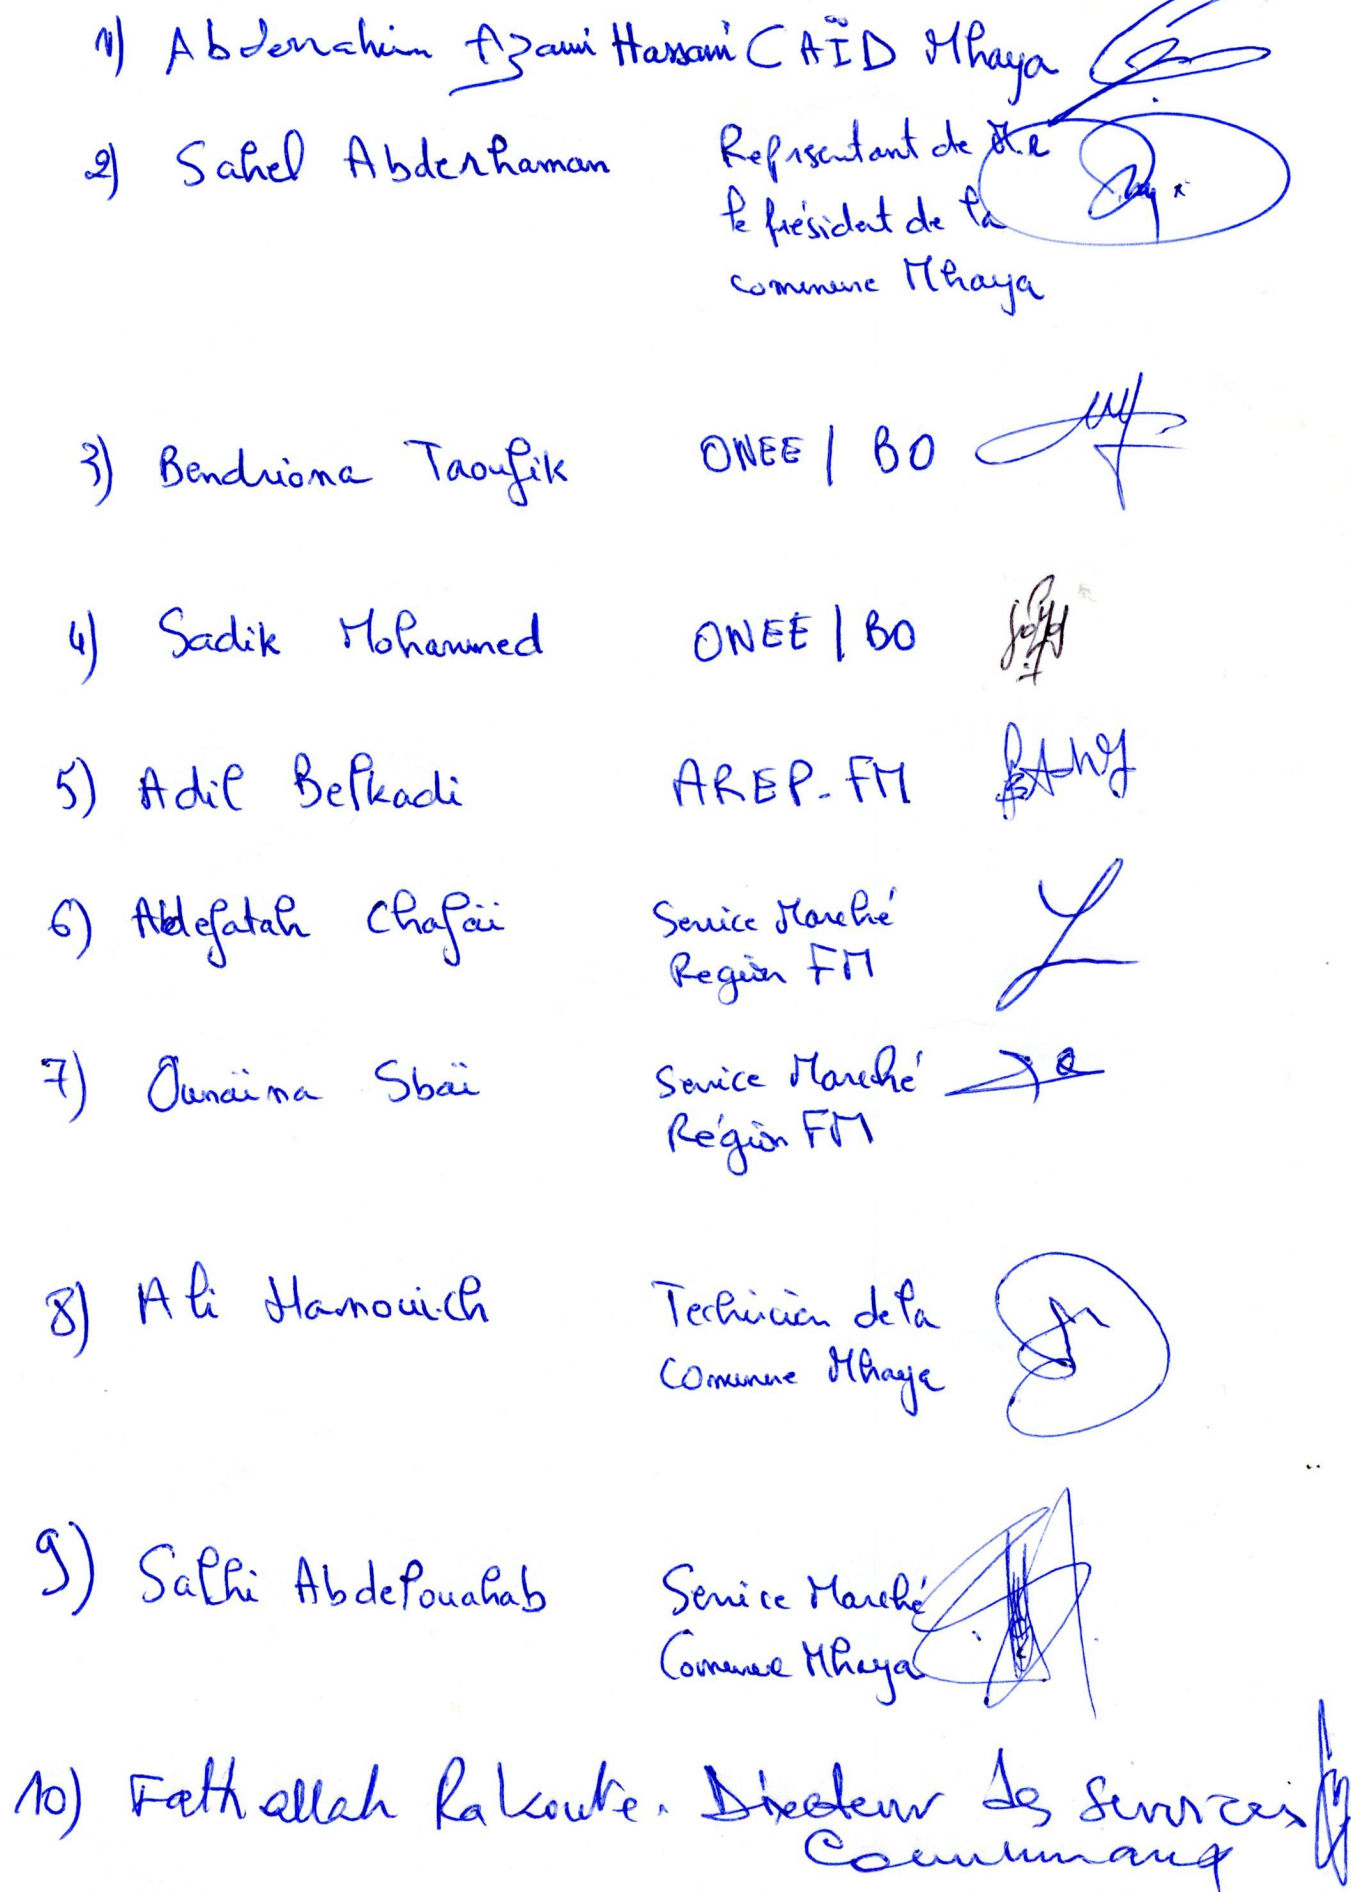 1) Abderrahim Azami Hassani CAÏD Mhaya
2) Sahel Abderhaman Représentant de Mr
le président de la
commune Mhaya
3) Bendriona Taoufik ONEE | BO
4) Sadik Mohammed ONEE | BO
5) Adil Belkadi AREP-FM
6) Abdefatah Chafaïi Service Marché
Region FM
7) Oumaïma Sbaï Service Marché
Région FM
8) Ali Hamouich Technicien de la
Commune Mhaya
9) Salhi Abdelouahab Service Marché
Commune Mhaya
10) Fathallah Directeur des services
Communaux